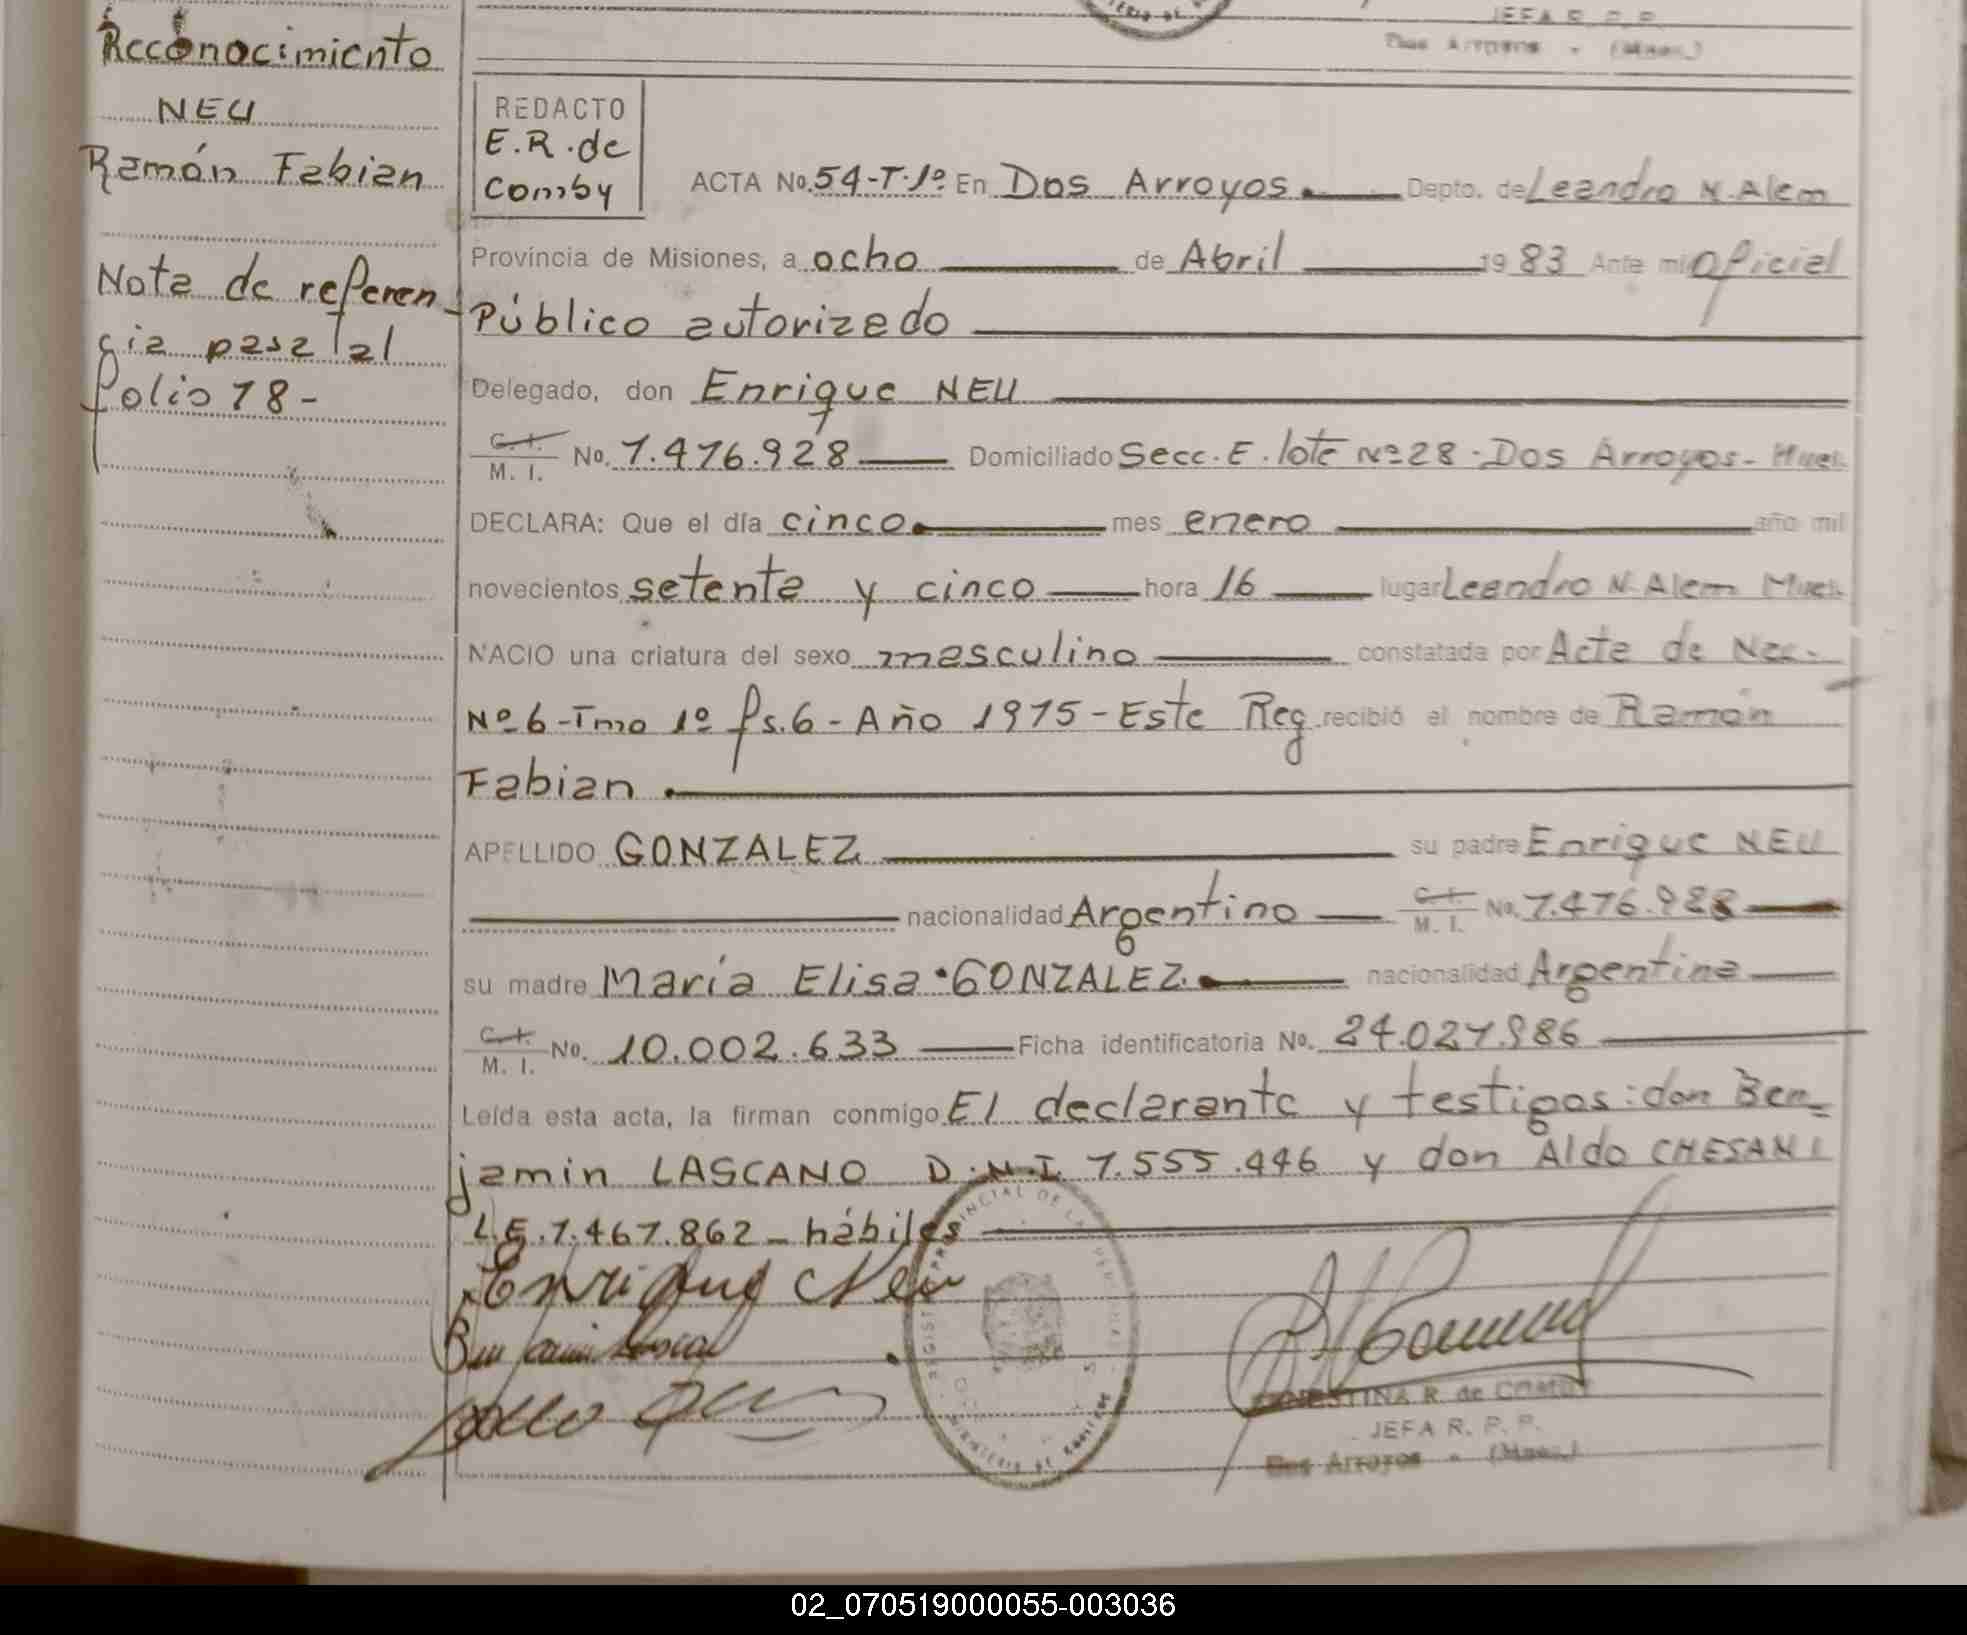 JEFA R. P. P.
Dos Arroyos - (Mnes.)
Reconocimiento
NEU
Ramón Fabian
Nota de referen-
cia pasa al
folio 18-
REDACTO
E.R. de
Comby
ACTA No. 54-T.1º En Dos Arroyos. Depto. de Leandro N. Alem
Provincia de Misiones, a ocho de Abril 19 83 Ante mi Oficial
Público autorizado
Delegado, don Enrique NEU
C. I. M. I. No. 7.476.928 Domiciliado Secc. E. lote Nº 28 - Dos Arroyos -
DECLARA: Que el día cinco. mes enero año mil
novecientos setenta y cinco hora 16 lugar Leandro N. Alem
NACIO una criatura del sexo masculino constatada por Acta de Nac.
Nº 6 - Tmo 1º fs. 6 - Año 1975 - Este Reg. recibió el nombre de Ramón
Fabian.
APELLIDO GONZALEZ su padre Enrique NEU
nacionalidad Argentino C. I. M. I. No. 7.476.928
su madre María Elisa GONZALEZ. nacionalidad Argentina
C. I. M. I. No. 10.002.633 Ficha identificatoria No. 24.027.986
Leída esta acta, la firman conmigo El declarante y testigos: don Ben-
jamin LASCANO D.N.I. 7.555.446 y don Aldo CHESANI
L.E. 7.467.862 - hábiles
Enrique Neu
ERNESTINA R. de COMBY
JEFA R. P. P.
Dos Arroyos - (Mnes.)
02_070519000055-003036